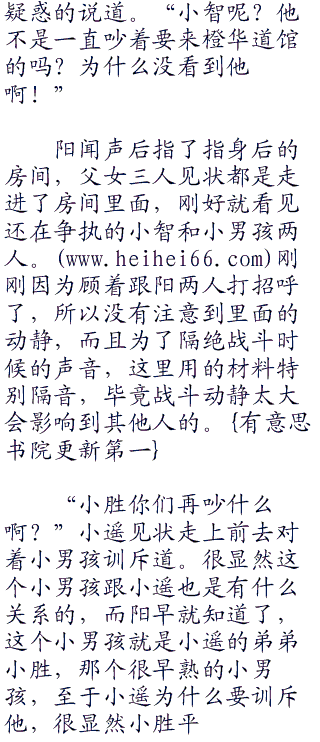 疑惑的说道。“小智呢？他
不是一直吵着要来橙华道馆
的吗？为什么没看到他
啊！”
阳闻声后指了指身后的
房间，父女三人见状都是走
进了房间里面，刚好就看见
还在争执的小智和小男孩两
人。(www.heihei66.com)刚
刚因为顾着跟阳两人打招呼
了，所以没有注意到里面的
动静，而且为了隔绝战斗时
候的声音，这里用的材料特
别隔音，毕竟战斗动静太大
会影响到其他人的。{有意思
书院更新第一}
“小胜你们再吵什么
啊？”小遥见状走上前去对
着小男孩训斥道。很显然这
个小男孩跟小遥也是有什么
关系的，而阳早就知道了，
这个小男孩就是小遥的弟弟
小胜，那个很早熟的小男
孩，至于小遥为什么要训斥
他，很显然小胜平